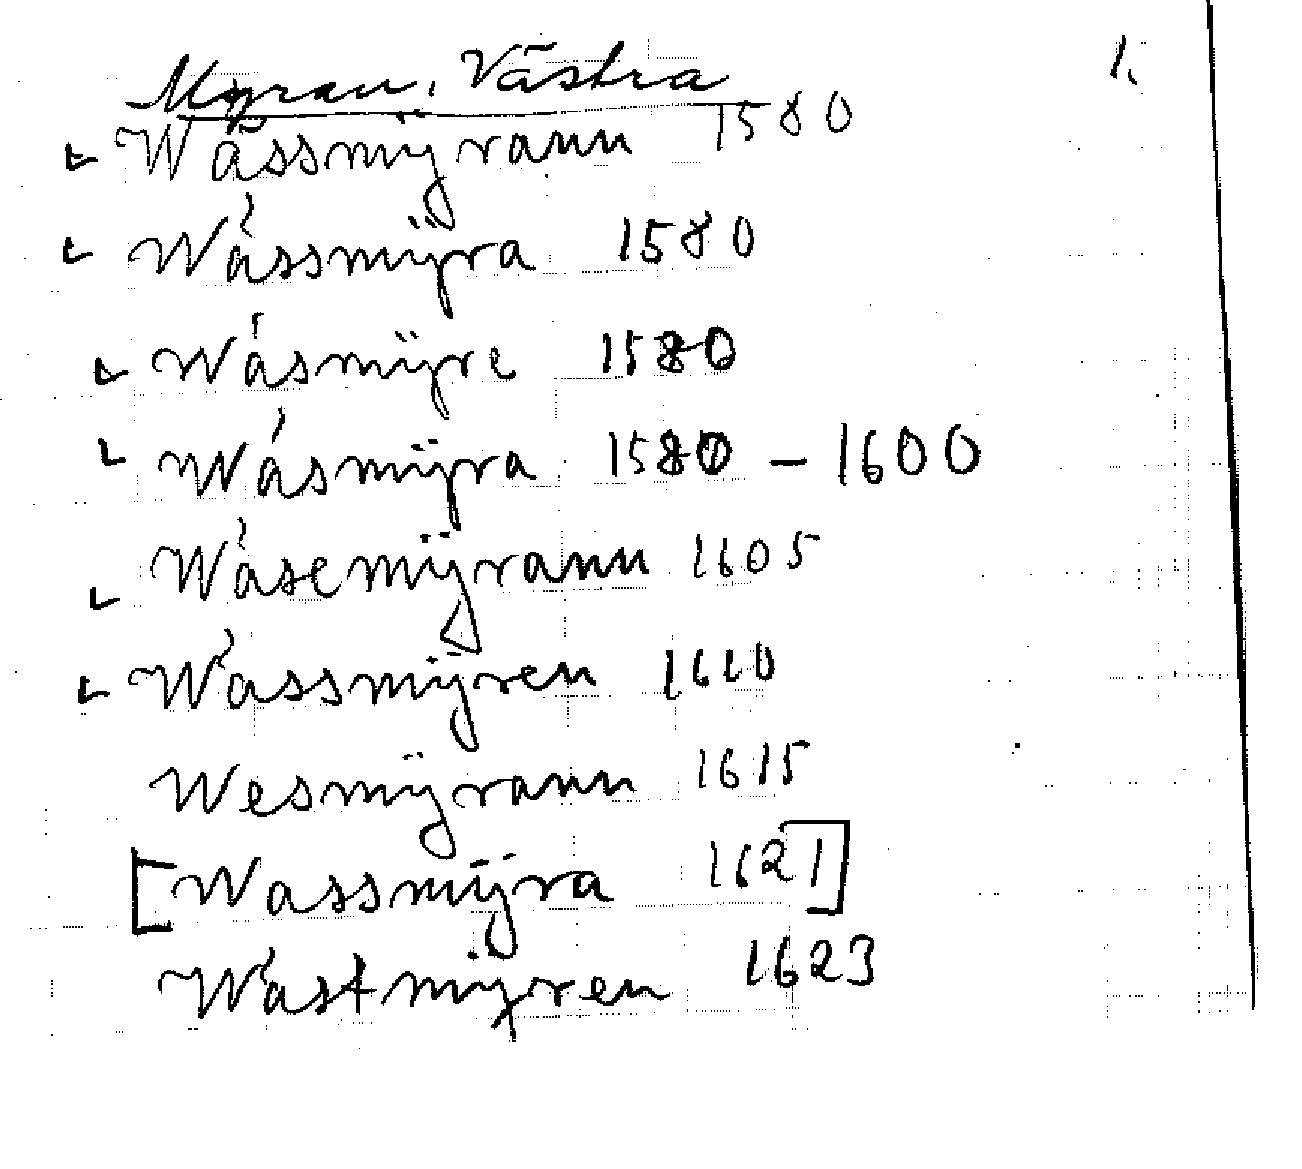 Myran, Västra 1.
Wässmÿrann 1580
Wássmÿra 1580
Wásmÿre 1580
Wásmÿra 1580 – 1600
Wásemÿrann 1605
Wássmÿren 1610
Wesmÿrann 1615
[Wassmÿra 1621]
Wástmÿren 1623